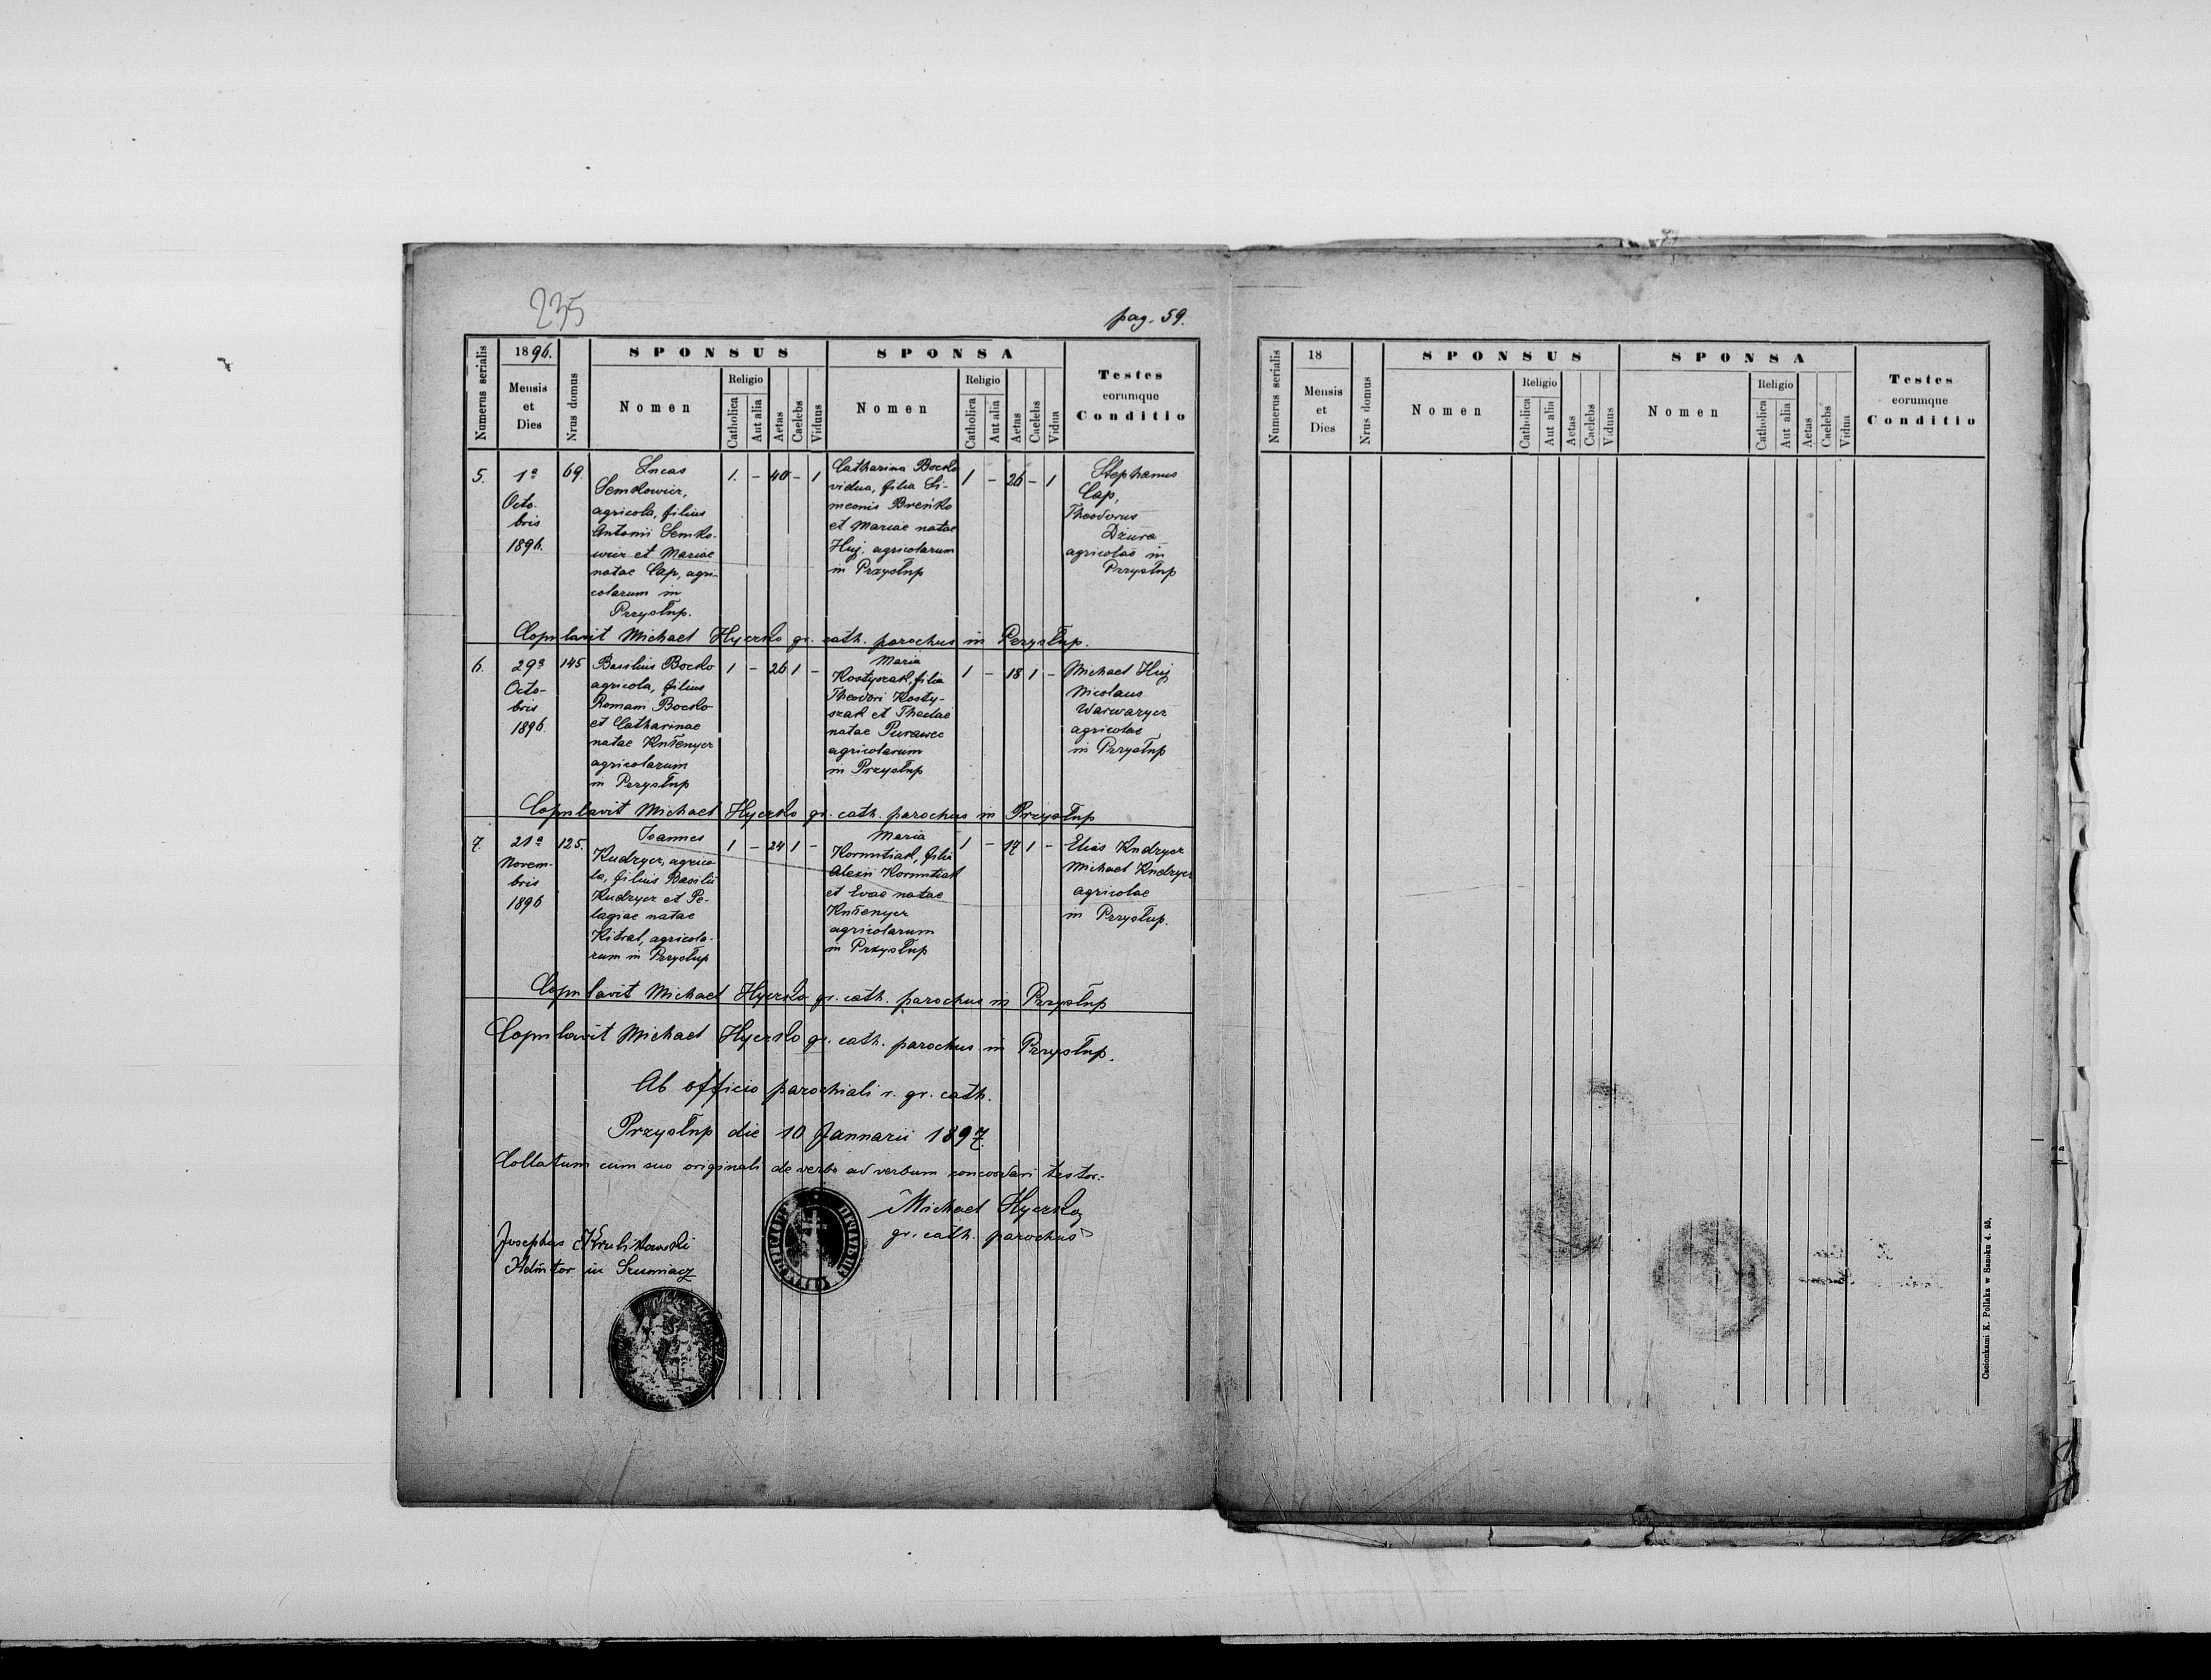 235
pag. 59.
Numerus serialis
1896.
Mensis
et
Dies
Nrus domus
SPONSUS
Nomen
Religio
Catholica
Aut alia
Aetas
Caelebs
Viduus
SPONSA
Nomen
Religio
Catholica
Aut alia
Aetas
Caelebs
Vidua
Testes
eorumque
Conditio
5.
1a
Octo-
bris
1896.
69.
Lucas
Semkowicz,
agricola, filius
Antonii Semko-
wicz et Mariae
natae Cap, agri-
colarum in
Przysłup.
1. - 40 - 1
Catharina Bocko
vidua, filia Si-
meonis Breńko
et Mariae natae
Huj, agricolarum
in Przysłup
1 - 26 - 1
Stephanus
Cap,
Theodorus
Dzura
agricolae in
Przysłup
Copulavit Michael Hyczko gr. cath. parochus in Przysłup.
6.
29a
Octo-
bris
1896.
145
Basilius Bocko
agricola, filius
Romani Bocko
et Catharinae
natae Kułenycz
agricolarum
in Przysłup
1 - 26 1 -
Maria
Kostyszak, filia
Theodori Kosty-
szak et Theclae
natae Purawec
agricolarum
in Przysłup
1 - 18 1 -
Michael Huj
Nicolaus
Warwarycz
agricolae
in Przysłup
Copulavit Michael Hyczko gr. cath. parochus in Przysłup
7.
21a
Novem-
bris
1896
125.
Joannes
Kudrycz, agrico-
la, filius Basilii
Kudrycz et Pe-
lagiae natae
Kitral, agricola-
rum in Przysłup
1 - 24 1 -
Maria
Kornutiak, filia
Alexii Kornutiak
et Evae natae
Kułenycz
agricolarum
in Przysłup
1 - 17 1 -
Elias Kudrycz
Michael Kudrycz
agricolae
in Przysłup.
Copulavit Michael Hyczko gr. cath. parochus in Przysłup
Copulavit Michael Hyczko gr. cath. parochus in Przysłup.
Ab officio parochiali r. gr. cath.
Przysłup die 10 Januarii 1897.
Collatum cum suo originali de verbo ad verbum concordari testor.
Michael Hyczko
gr. cath. parochus
Josephus Krulikowski
Admtor in Szumiacz
Numerus serialis
18
Mensis
et
Dies
Nrus domus
SPONSUS
Nomen
Religio
Catholica
Aut alia
Aetas
Caelebs
Viduus
SPONSA
Nomen
Religio
Catholica
Aut alia
Aetas
Caelebs
Vidua
Testes
eorumque
Conditio
Czcionkami K. Pollaka w Sanoku 4. 95.